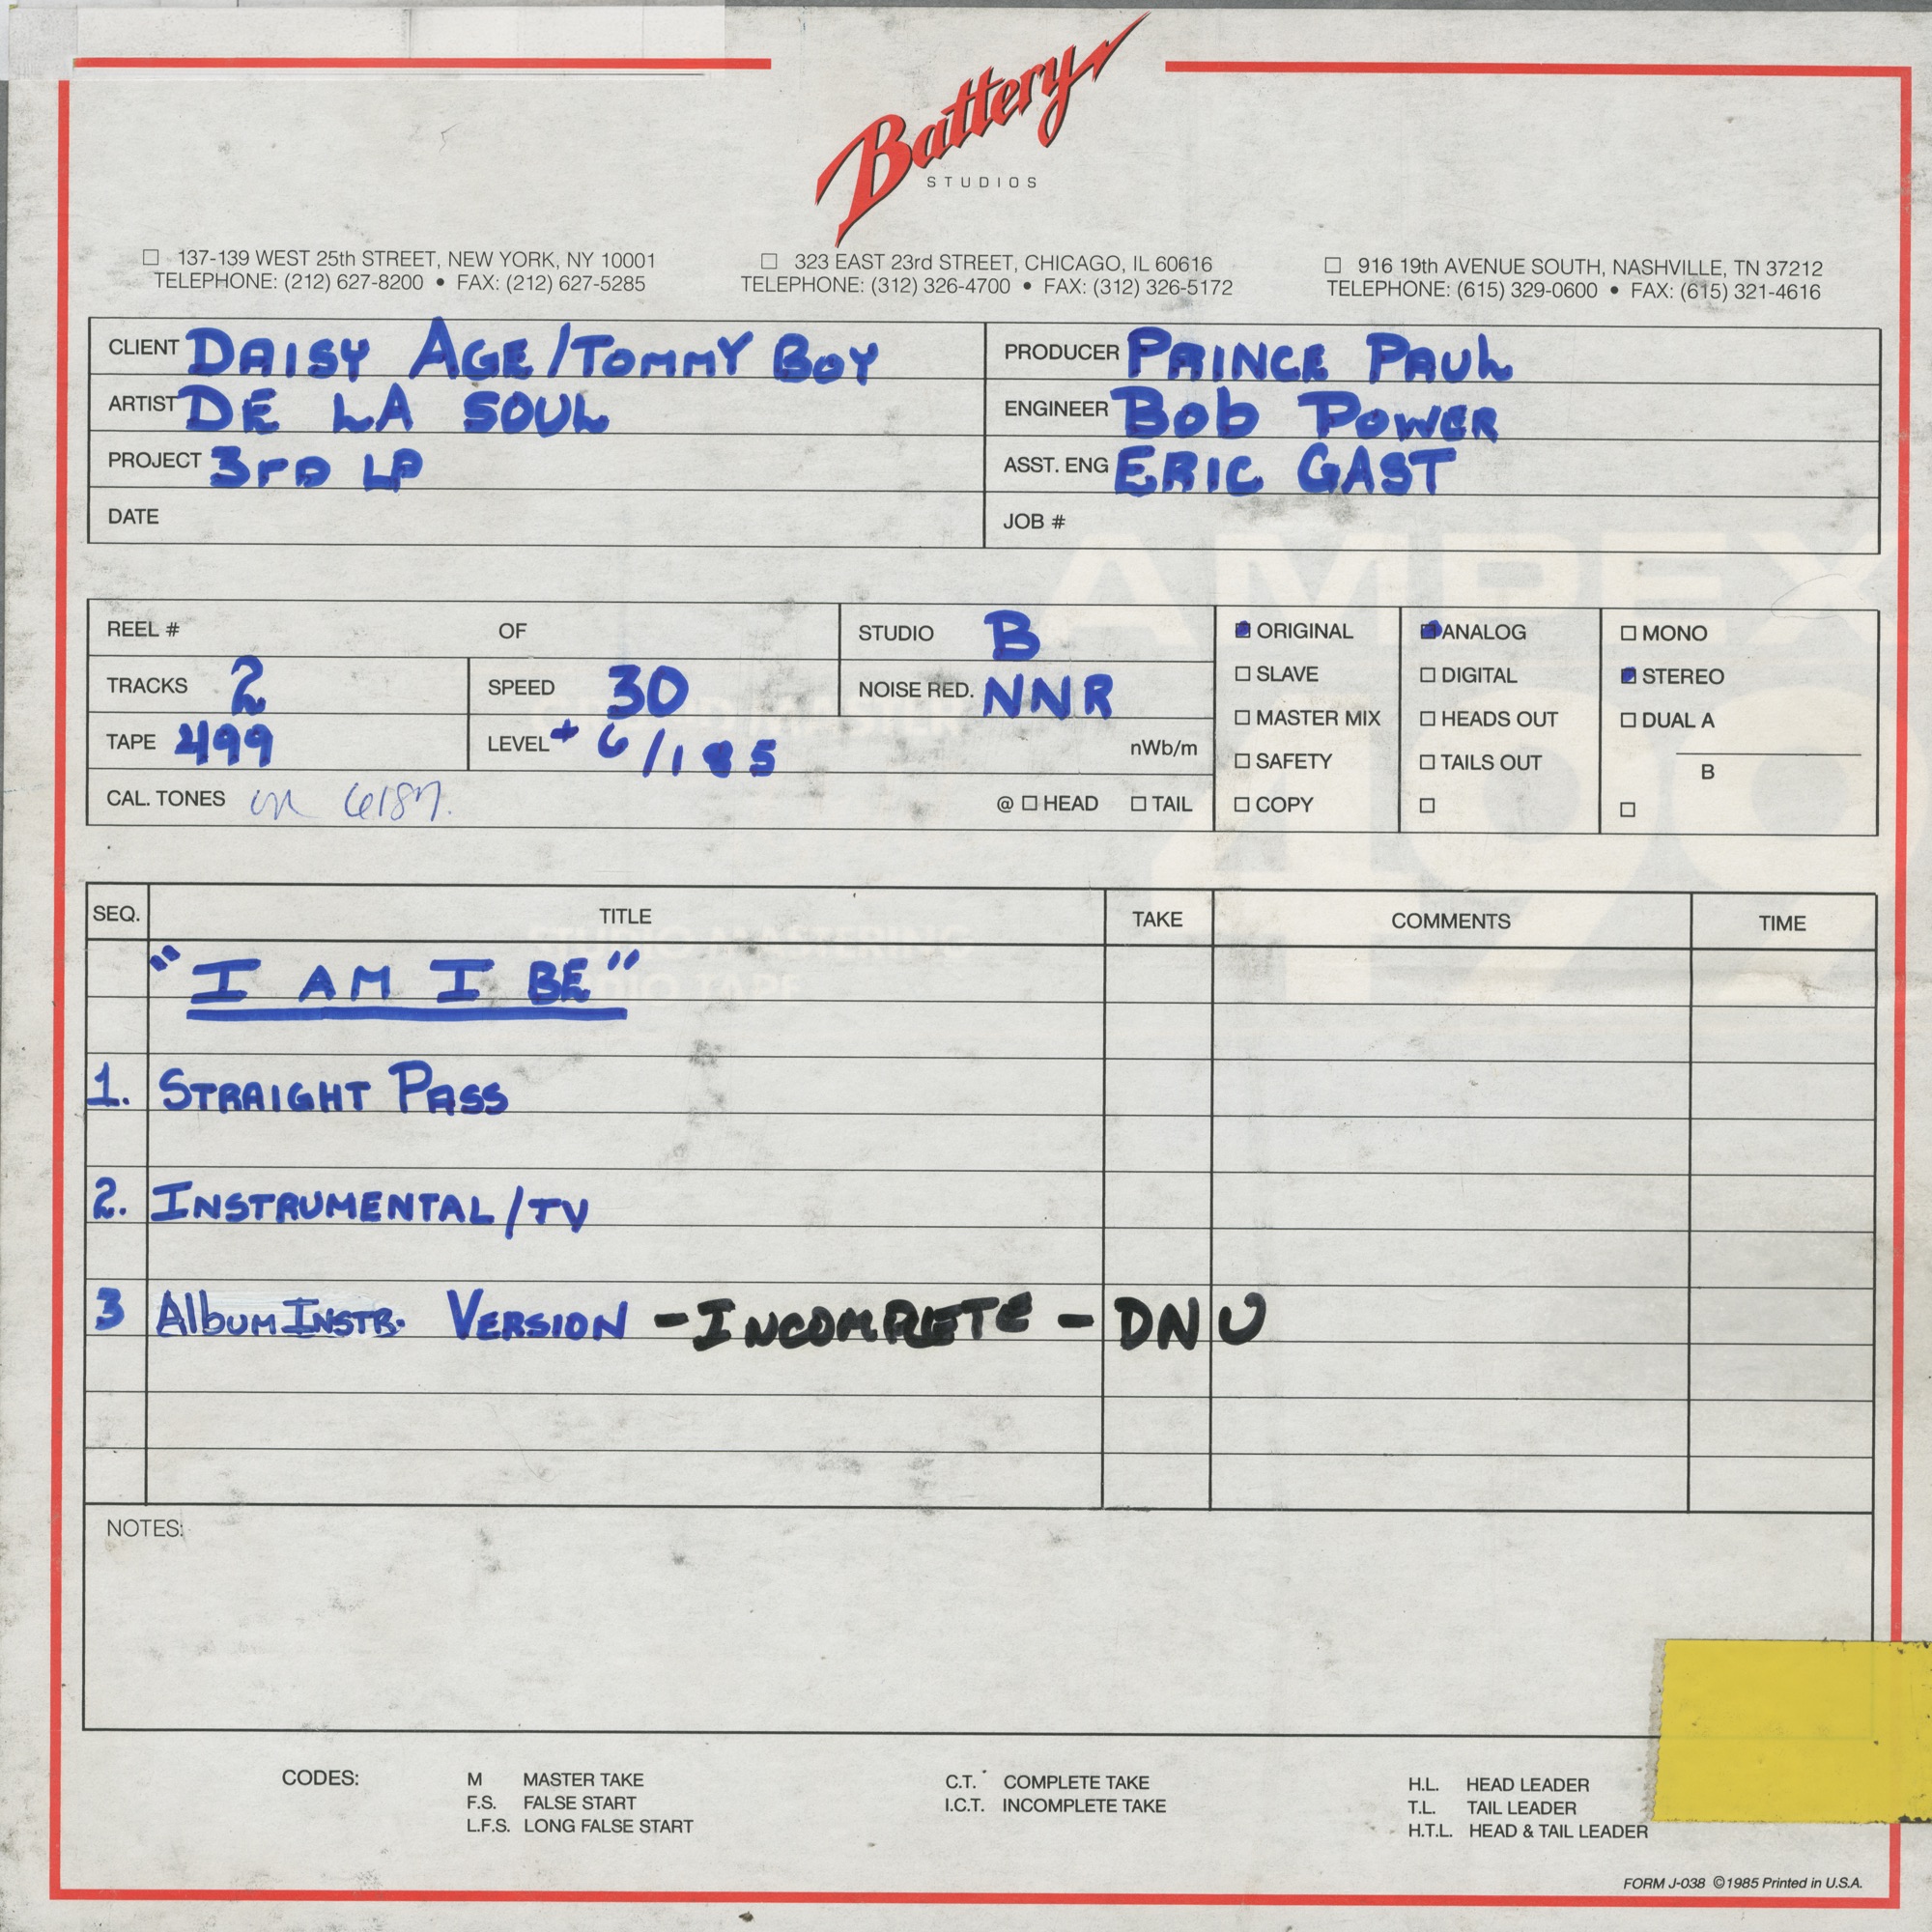 Battery
STUDIOS
☐ 137-139 WEST 25th STREET, NEW YORK, NY 10001
TELEPHONE: (212) 627-8200 • FAX: (212) 627-5285
☐ 323 EAST 23rd STREET, CHICAGO, IL 60616
TELEPHONE: (312) 326-4700 • FAX: (312) 326-5172
☐ 916 19th AVENUE SOUTH, NASHVILLE, TN 37212
TELEPHONE: (615) 329-0600 • FAX: (615) 321-4616
CLIENT DAISY AGE/TOMMY BOY
ARTIST DE LA SOUL
PROJECT 3RD LP
DATE
PRODUCER PRINCE PAUL
ENGINEER BOB POWER
ASST. ENG ERIC GAST
JOB #
REEL # OF
STUDIO B
TRACKS 2
SPEED 30
NOISE RED. NNR
TAPE 499
LEVEL +6/185 nWb/m
CAL. TONES on 6187. @ ☐ HEAD ☐ TAIL
☑ ORIGINAL
☐ SLAVE
☐ MASTER MIX
☐ SAFETY
☐ COPY
☑ ANALOG
☐ DIGITAL
☐ HEADS OUT
☐ TAILS OUT
☐
☐ MONO
☑ STEREO
☐ DUAL A
B
☐
AMPEX
499
SEQ. TITLE TAKE COMMENTS TIME
"I AM I BE"
1. STRAIGHT PASS
2. INSTRUMENTAL/TV
3 Album INSTR. VERSION - INCOMPLETE - DNU
NOTES:
CODES:
M MASTER TAKE
F.S. FALSE START
L.F.S. LONG FALSE START
C.T. COMPLETE TAKE
I.C.T. INCOMPLETE TAKE
H.L. HEAD LEADER
T.L. TAIL LEADER
H.T.L. HEAD & TAIL LEADER
FORM J-038 ©1985 Printed in U.S.A.